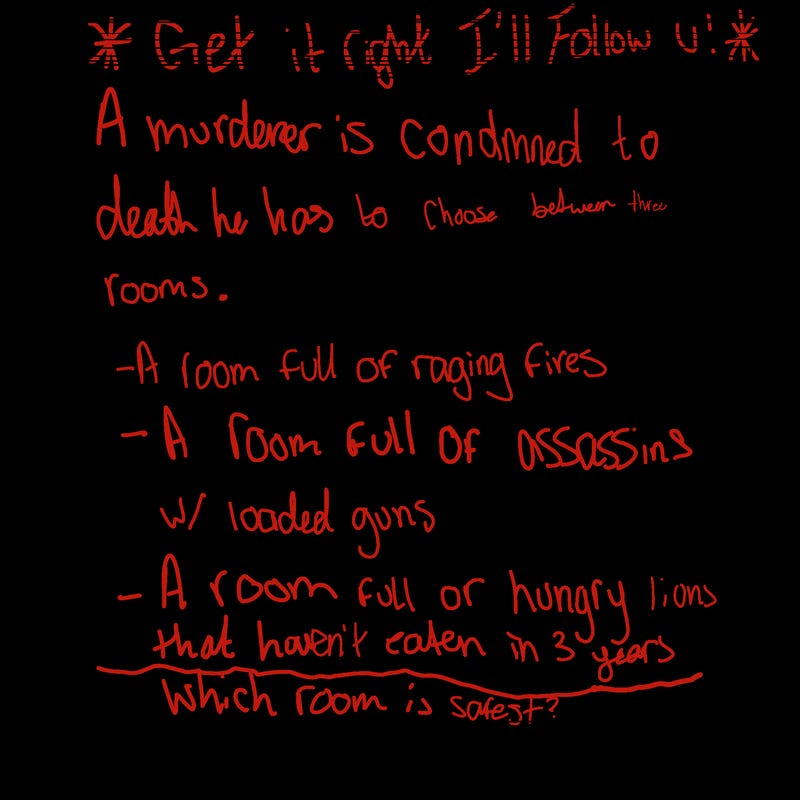 * Get it right I'll Follow u! *
A murderer is condmned to
death he has to choose between three
rooms.
-A room full of raging fires
- A room full of assassins
w/ loaded guns
- A room full of hungry lions
that haven't eaten in 3 years
Which room is safest?